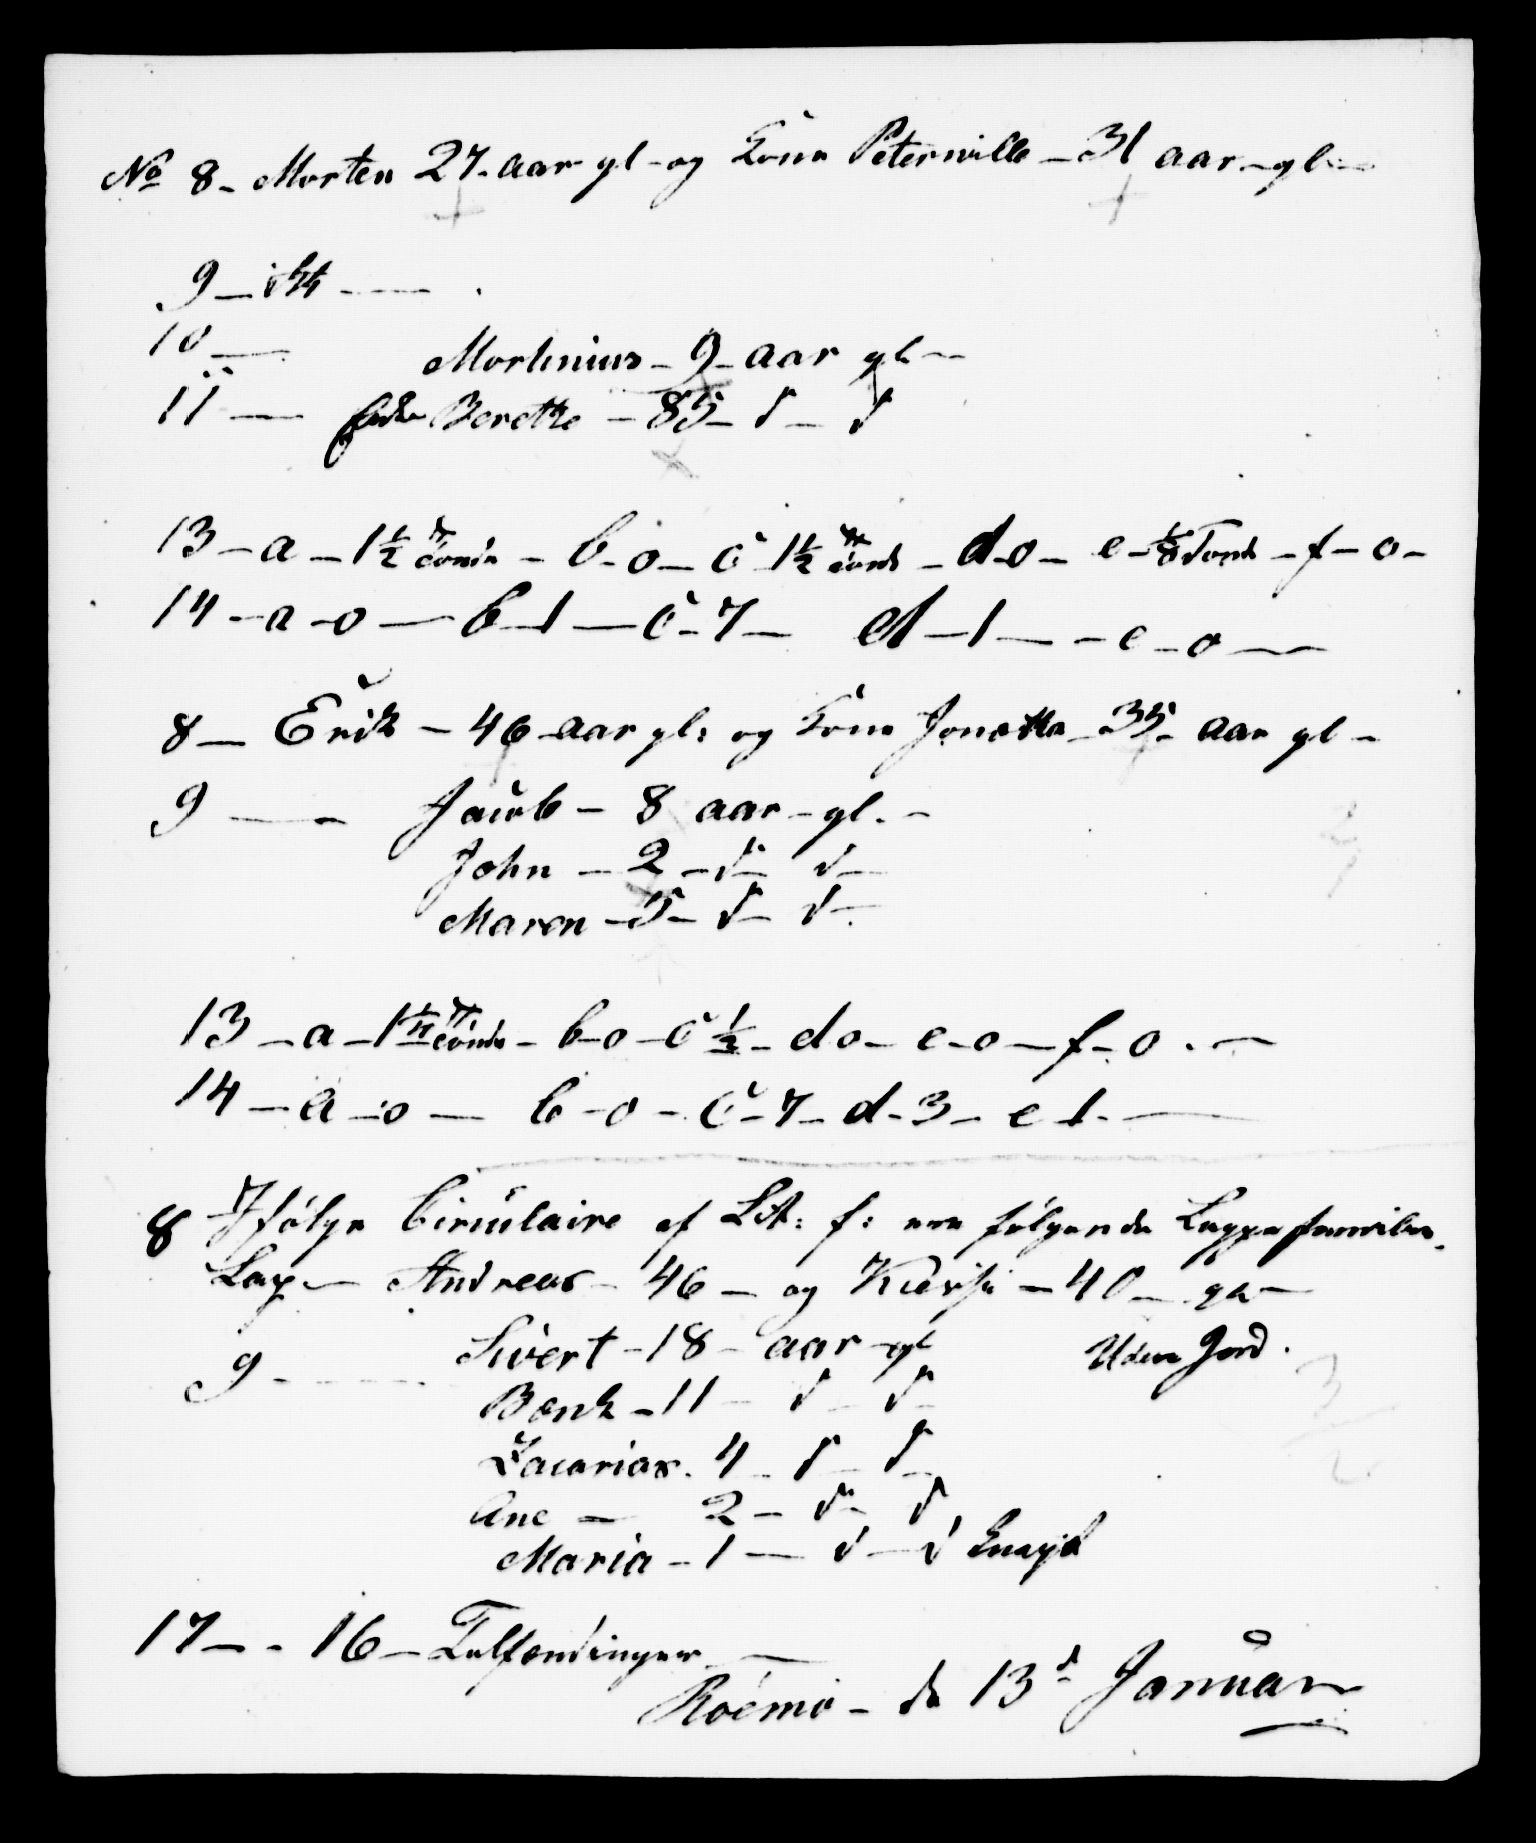 No 8 – Morten 27 – aar gl – og Kone Peternille – 31 aar – gl –
9 –
10 – Mortinius – 9 – aar gl –
11 – Enke Berethe – 85 – d – d
13 – a – 1½ – b – o – c 1½ – d – o – e – ⅛ Tønde – f – o –
14 – a – o – b – 1 – c – 7 – d – 1 – e – o –
8 – Erik – 46 – aar gl: og Kone Jonetta – 35 – aar gl –
9 – Jacob – 8 aar – gl. –
John – 2 – d – d –
Maren – 5 – d – d –
13 – a – 1¼ – b – o – c ½ – d o – e – o – f – o . –
14 – a – o – b – o – c – 7 – d – 3 – e 1 . –
8 Ifølge Circulaire af Lit: f: ere følgende Lappefamilier.
Lap – Andreas – 46 – og – 40 –
9 – Sivert – 18 – aar – gl Uden Jord .
Benk – 11 – d – d –
Zacarias . 4 – d – d –
Ane – 2 – d – d
Maria – 1 – d – d
17 – - 16 – –
Roémo – de 13d Januar